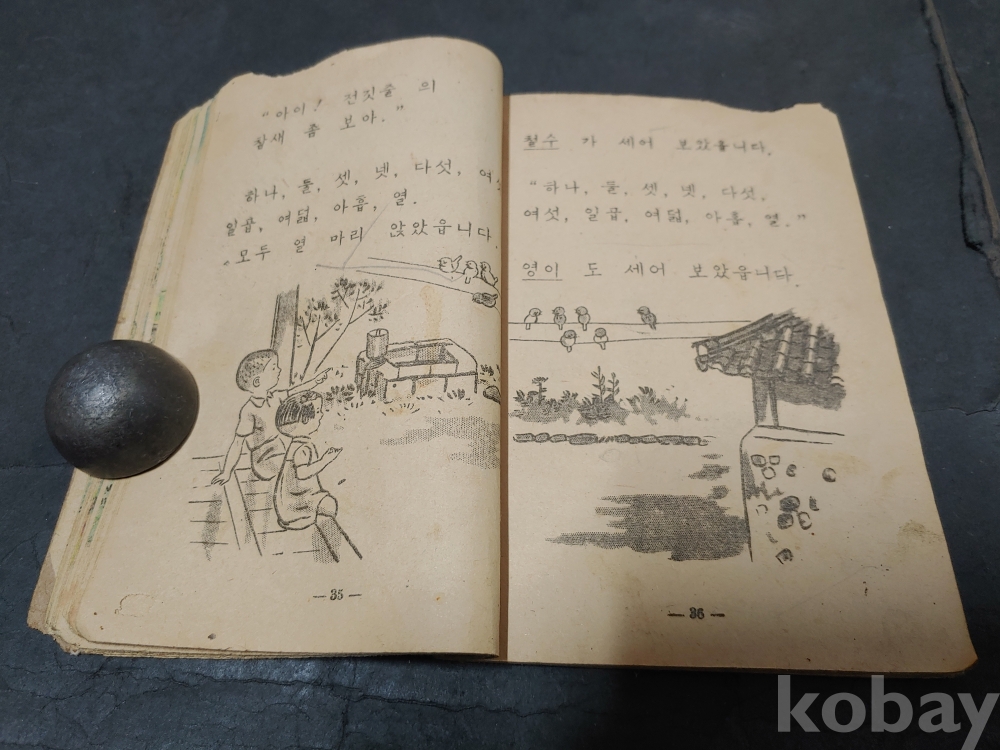 "아이! 전깃줄 의
참새 좀 보아."
하나, 둘, 셋, 넷, 다섯, 여섯
일곱, 여덟, 아홉, 열.
"모두 열 마리 앉았읍니다.
— 35 —
철수 가 세어 보았읍니다.
"하나, 둘, 셋, 넷, 다섯,
여섯, 일곱, 여덟, 아홉, 열."
영이 도 세어 보았읍니다.
— 36 —
kobay